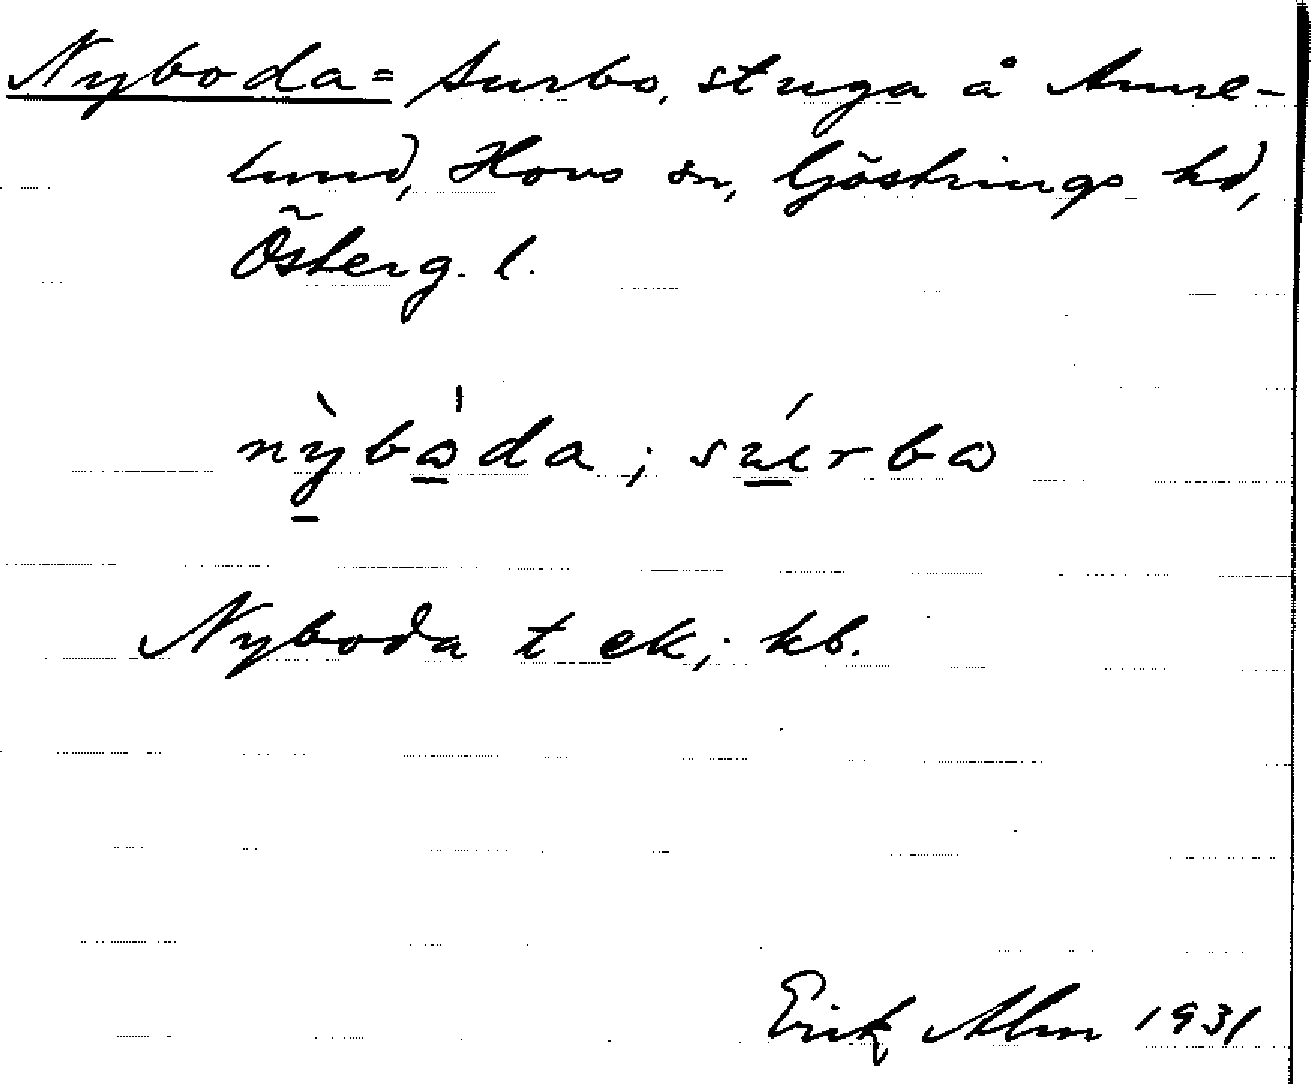 Nyboda = Surbo, stuga å Anne-
lund, Hovs sn, Göstrings hd,
Österg. l.
nỳbòda; súrbo
Nyboda t ek; kb.
Erik Alm 1931